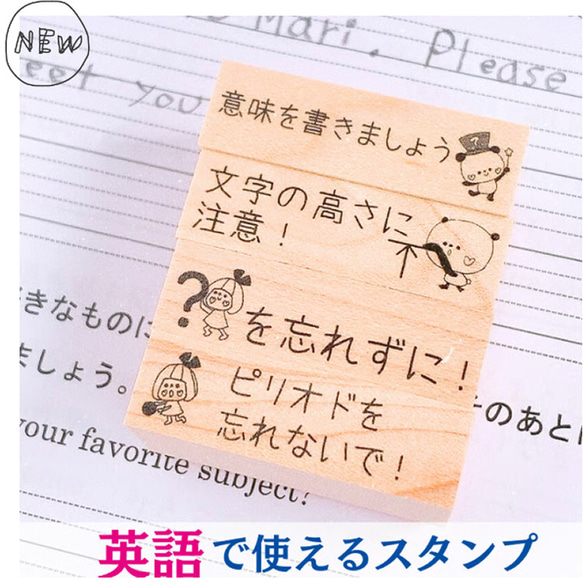 NEW
Mari. Please
eet you
意味を書きましょう
文字の高さに
注意！
?を忘れずに！
ピリオドを
忘れないで！
きなものに
ましょう。
そのあとに
your favorite subject?
英語で使えるスタンプ